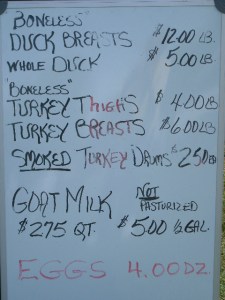 "BONELESS"
DUCK BREASTS $12.00 LB.
WHOLE DUCK $5.00 LB.
"BONELESS"
TURKEY THIGHS $4.00 LB
TURKEY BREASTS $6.00 LB.
SMOKED TURKEY DRUMS $2.50 LB
GOAT MILK NOT PASTURIZED
$2.75 QT. $5.00 ½ GAL.
EGGS 4.00 DZ.